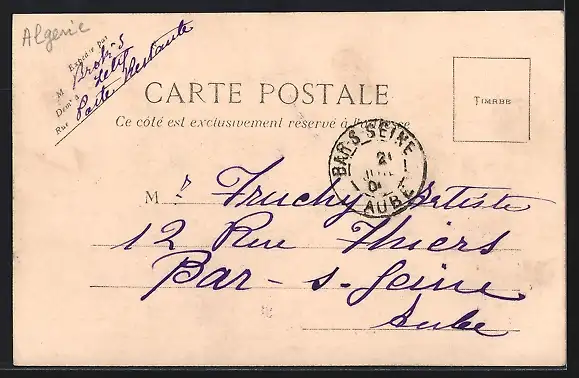 Algerie
Expédié par
M Brok. S
Demt à Sétif
Rue Poste Restante
CARTE POSTALE
Ce côté est exclusivement réservé à l'adresse
TIMBRE
BAR-S-SEINE
21
AUBE
M r Truchy Batiste
12 Rue Thiers
Bar-s-Seine
Aube